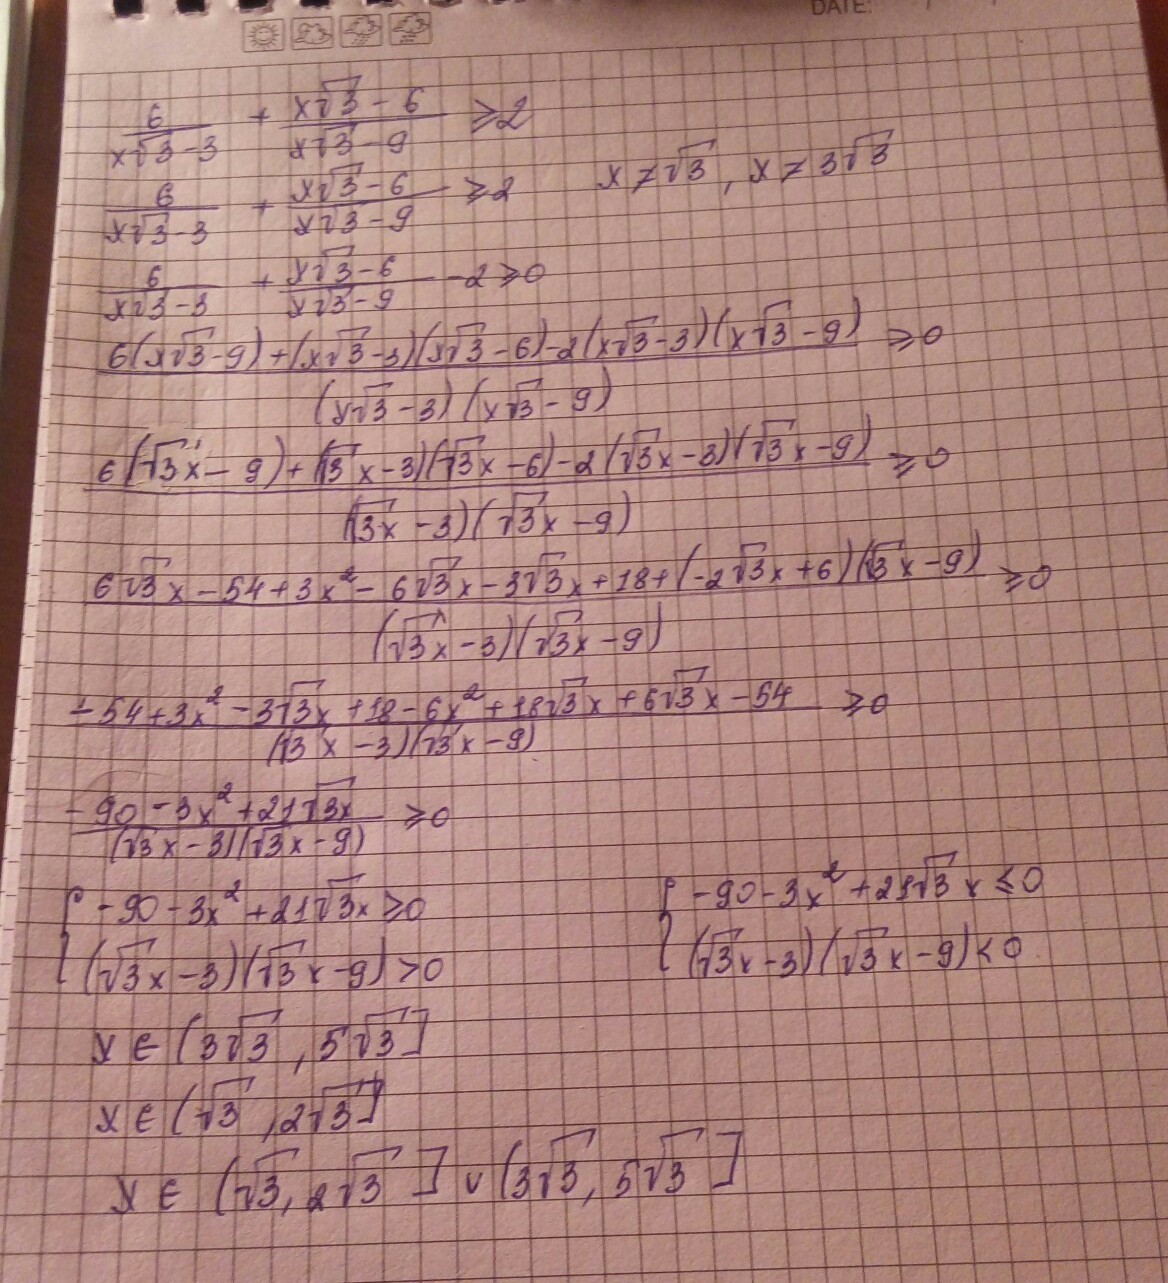 DATE:
6/(x√3-3) + (x√3-6)/(x√3-9) ≥2
6/(x√3-3) + (x√3-6)/(x√3-9) ≥2 x≠√3, x≠3√3
6/(x√3-3) + (x√3-6)/(x√3-9) -2≥0
(6(x√3-9)+(x√3-3)(x√3-6)-2(x√3-3)(x√3-9))/((x√3-3)(x√3-9)) ≥0
(6(√3x-9)+(√3x-3)(√3x-6)-2(√3x-3)(√3x-9))/((√3x-3)(√3x-9)) ≥0
(6√3x-54+3x²-6√3x-3√3x+18+(-2√3x+6)(√3x-9))/((√3x-3)(√3x-9)) ≥0
(-54+3x²-3√3x+18-6x²+18√3x+6√3x-54)/((√3x-3)(√3x-9)) ≥0
(-90-3x²+21√3x)/((√3x-3)(√3x-9)) ≥0
{ -90-3x²+21√3x≥0
(√3x-3)(√3x-9)>0
{ -90-3x²+21√3x≤0
(√3x-3)(√3x-9)<0
x∈(3√3, 5√3]
x∈(√3, 2√3]
x∈(√3, 2√3]∪(3√3, 5√3]